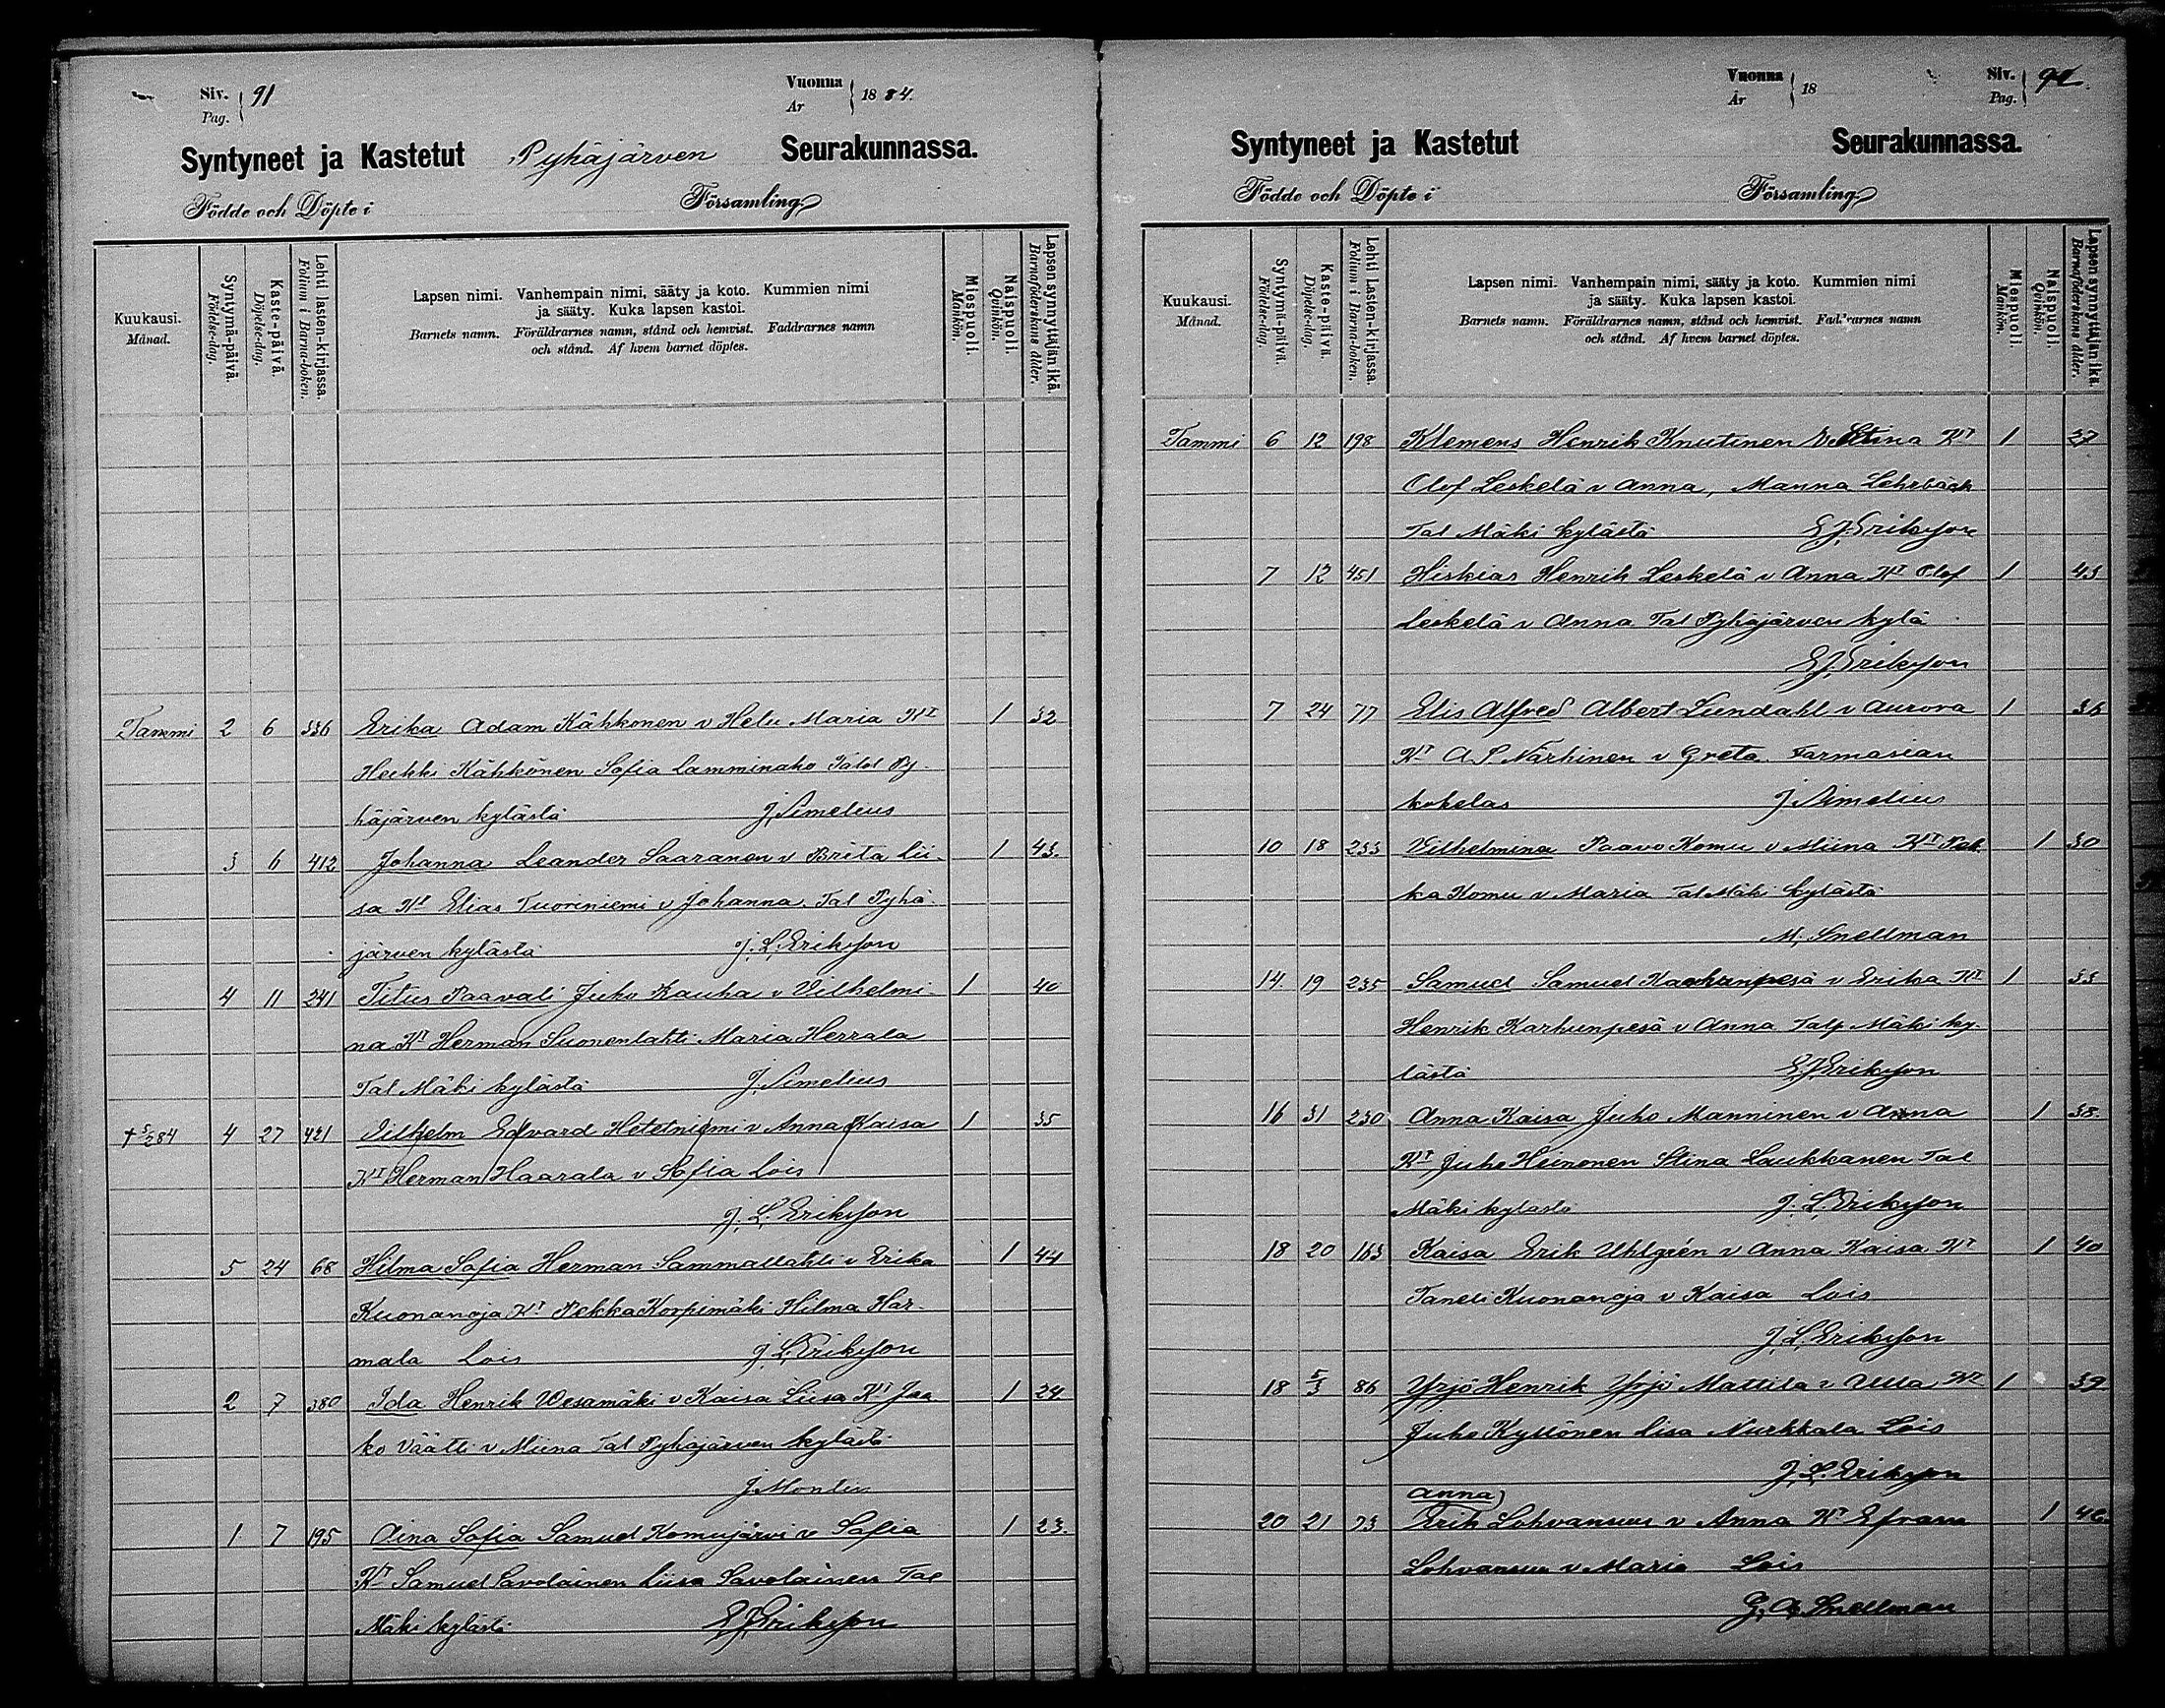 Siv. 91
Pag.
Vuonna 1884.
År
Syntyneet ja Kastetut Pyhäjärven Seurakunnassa.
Födde och Döpte i Församling
Kuukausi. Månad.
Syntymä-päivä. Födelse-dag.
Kaste-päivä. Döpelse-dag.
Lehti lasten-kirjassa. Folium i Barna-boken.
Lapsen nimi. Vanhempain nimi, sääty ja koto. Kummien nimi
ja sääty. Kuka lapsen kastoi.
Barnets namn. Föräldrarnes namn, stånd och hemvist. Faddrarnes namn
och stånd. Af hvem barnet döptes.
Miespuoli. Mankön.
Naispuoli. Qvinkön.
Lapsen synnyttäjän ikä. Barnaföderskans ålder.
Tammi 2 6 336 Erika Adam Kähkönen v Helu Maria Kt 1 32
Heikki Kähkönen Sofia Lamminaho Talol Py-
häjärven kylästä J. Simelius
3 6 412 Johanna Leander Saaranen v Brita Lii- 1 43.
sa Kt Elias Tuoriniemi v Johanna. Tal Pyhä-
järven kylästä J. L. Eriksson
4 11 241 Titus Paavali Juho Rauha v Vilhelmi- 1 40
na Kt Herman Suonenlahti Maria Herrala
Tal Mäki kylästä J. Simelius
† 5/2 84 4 27 421 Vilhelm Edvard Hotetniemi v Anna Kaisa 1 35
Kt Herman Haarala v Sofia Lois
J. L. Eriksson
5 24 68 Hilma Sofia Herman Sammallahti v Erika 1 44
Kuonanoja Kt Pekka Korpimäki Hilma Har-
mala Lois J. L. Eriksson
2 7 380 Ida Henrik Vesamäki v Kaisa Liisa Kt Jaa 1 24
ko Väätti v Miina Tal Pyhäjärven kylästä
J. Montin
1 7 195 Aina Sofia Samuel Komujärvi v Sofia 1 23.
Kt Samuel Savolainen Liisa Savolainen Tal
Mäki kylästä E. J. Eriksson
Vuonna 18
År
Siv. 92
Pag.
Syntyneet ja Kastetut Seurakunnassa.
Födde och Döpte i Församling
Kuukausi. Månad.
Syntymä-päivä. Födelse-dag.
Kaste-päivä. Döpelse-dag.
Lehti Lasten-kirjassa. Folium i Barna-boken.
Lapsen nimi. Vanhempain nimi, sääty ja koto. Kummien nimi
ja sääty. Kuka lapsen kastoi.
Barnets namn. Föräldrarnes namn, stånd och hemvist. Faddrarnes namn
och stånd. Af hvem barnet döptes.
Miespuoli. Mankön.
Naispuoli. Qvinkön.
Lapsen synnyttäjän ikä. Barnaföderskans ålder.
Tammi 6 12 198 Klemens Henrik Knutinen v Stina Kt 1 27
Olof Leskelä v Anna, Manna Lehrbäck
Tal Mäki kylästä E. J. Eriksson
7 12 451 Hiskias Henrik Leskelä v Anna Kt Olof 1 43
Leskelä v Anna Tal Pyhäjärven kylä
E. J. Eriksson
7 24 77 Elis Alfred Albert Lundahl v Aurora 1 36
Kt A P Närhinen v Greta Farmasian
kokelas J. Simelius
10 18 233 Vilhelmina Paavo Komu v Miina Kt 1 30
ka Komu v Maria Tal Mäki kylästä
M. Snellman
14. 19 235 Samuel Samuel Karhunpesä v Erika Kt 1 33
Henrik Karhunpesä v Anna Talp Mäki ky-
lästä E. J. Eriksson
16 31 230 Anna Kaisa Juho Manninen v Anna 1 38.
Kt Juho Heinonen Stina Laukkanen Tal
Mäki kylästä J. L. Eriksson
18 20 163 Kaisa Erik Uhlgrén v Anna Kaisa Kt 1 40
Taneli Kuonanoja v Kaisa Lois
J. L. Eriksson
18 5/3 86 Yrjö Henrik Yrjö Mattila v Ulla Kt 1 39
Juho Kyllönen Lisa Nurkkala Lois
J. L. Eriksson
Anna
20 21 73 Erik Lohvansuu v Anna Kt Efram 1 46.
Lohvansuu v Maria Lois
G. A. Snellman